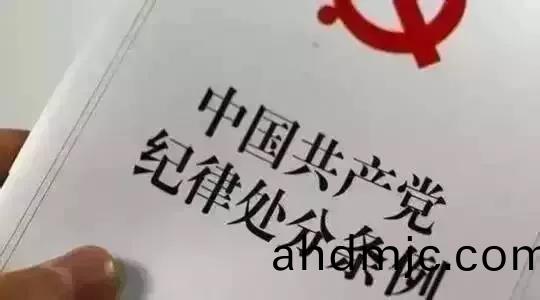 中国共产党
纪律处分条例
andmjc.com